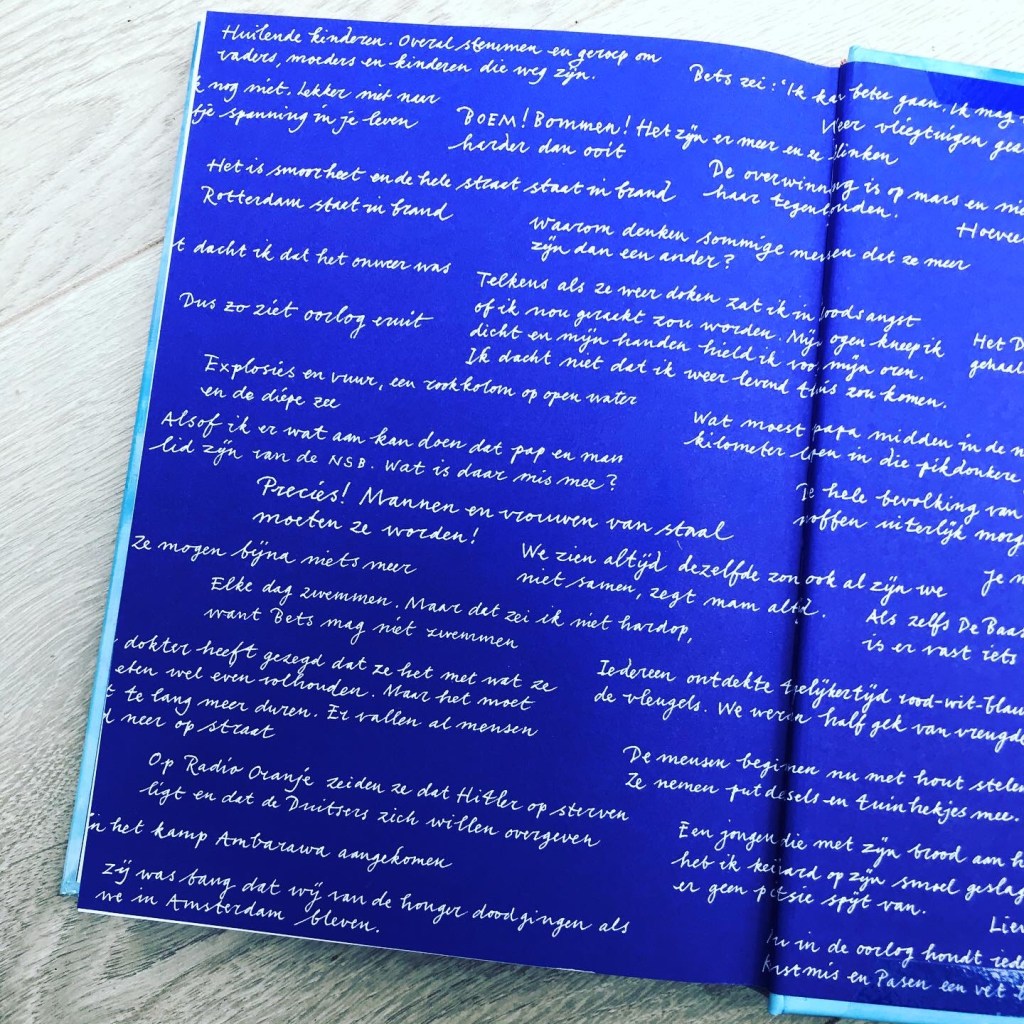 Huilende kinderen. Overal stemmen en geroep om
vaders, moeders en kinderen die weg zijn.
Bets zei: 'Ik kan beter gaan. Ik mag
k nog niet. Lekker niet naar
fje spanning in je leven
BOEM! Bommen! Het zijn er meer en ze klinken
harder dan ooit
Weer vliegtuigen
De overwinning is op mars en
haar tegenhouden.
Het is smoorheet en de hele straat staat in brand
Rotterdam staat in brand
Waarom denken sommige mensen dat ze meer
zijn dan een ander?
t dacht ik dat het onweer was
Telkens als ze weer doken zat ik in doodsangst
of ik nou geraakt zou worden. Mijn ogen kneep ik
dicht en mijn handen hield ik voor mijn oren.
Ik dacht niet dat ik weer levend thuis zou komen.
Dus zo ziet oorlog eruit
Het D
gehaal
Explosies en vuur, een rookkolom op open water
en de diepe zee
Alsof ik er wat aan kan doen dat pap en mam
lid zijn van de NSB. Wat is daar mis mee?
Wat moest papa midden in de n
kilometer lopen in die pikdonkere
Precies! Mannen en vrouwen van staal
moeten ze worden!
De hele bevolking van
uiterlijk morg
Ze mogen bijna niets meer
We zien altijd dezelfde zon ook al zijn we
niet samen, zegt mam altijd.
Je m
Elke dag zwemmen. Maar dat zei ik niet hardop,
want Bets mag niet zwemmen
Als zelfs De Baas
is er vast iets
dokter heeft gezegd dat ze het met wat ze
eten wel even volhouden. Maar het moet
t te lang meer duren. Er vallen al mensen
d neer op straat
Iedereen ontdekte tegelijkertijd rood-wit-blauw
de vleugels. We weren half gek van vreugde
Op Radio Oranje zeiden ze dat Hitler op sterven
ligt en dat de Duitsers zich willen overgeven
De mensen beginnen nu met hout stelen
Ze nemen putdeksels en tuinhekjes mee.
in het kamp Ambarawa aangekomen
Een jongen die met zijn brood aan h
heb ik keihard op zijn smoel geslag
er geen pietsie spijt van.
Zij was bang dat wij van de honger doodgingen als
we in Amsterdam bleven.
Liev
Nu in de oorlog houdt iede
Kerstmis en Pasen een vet